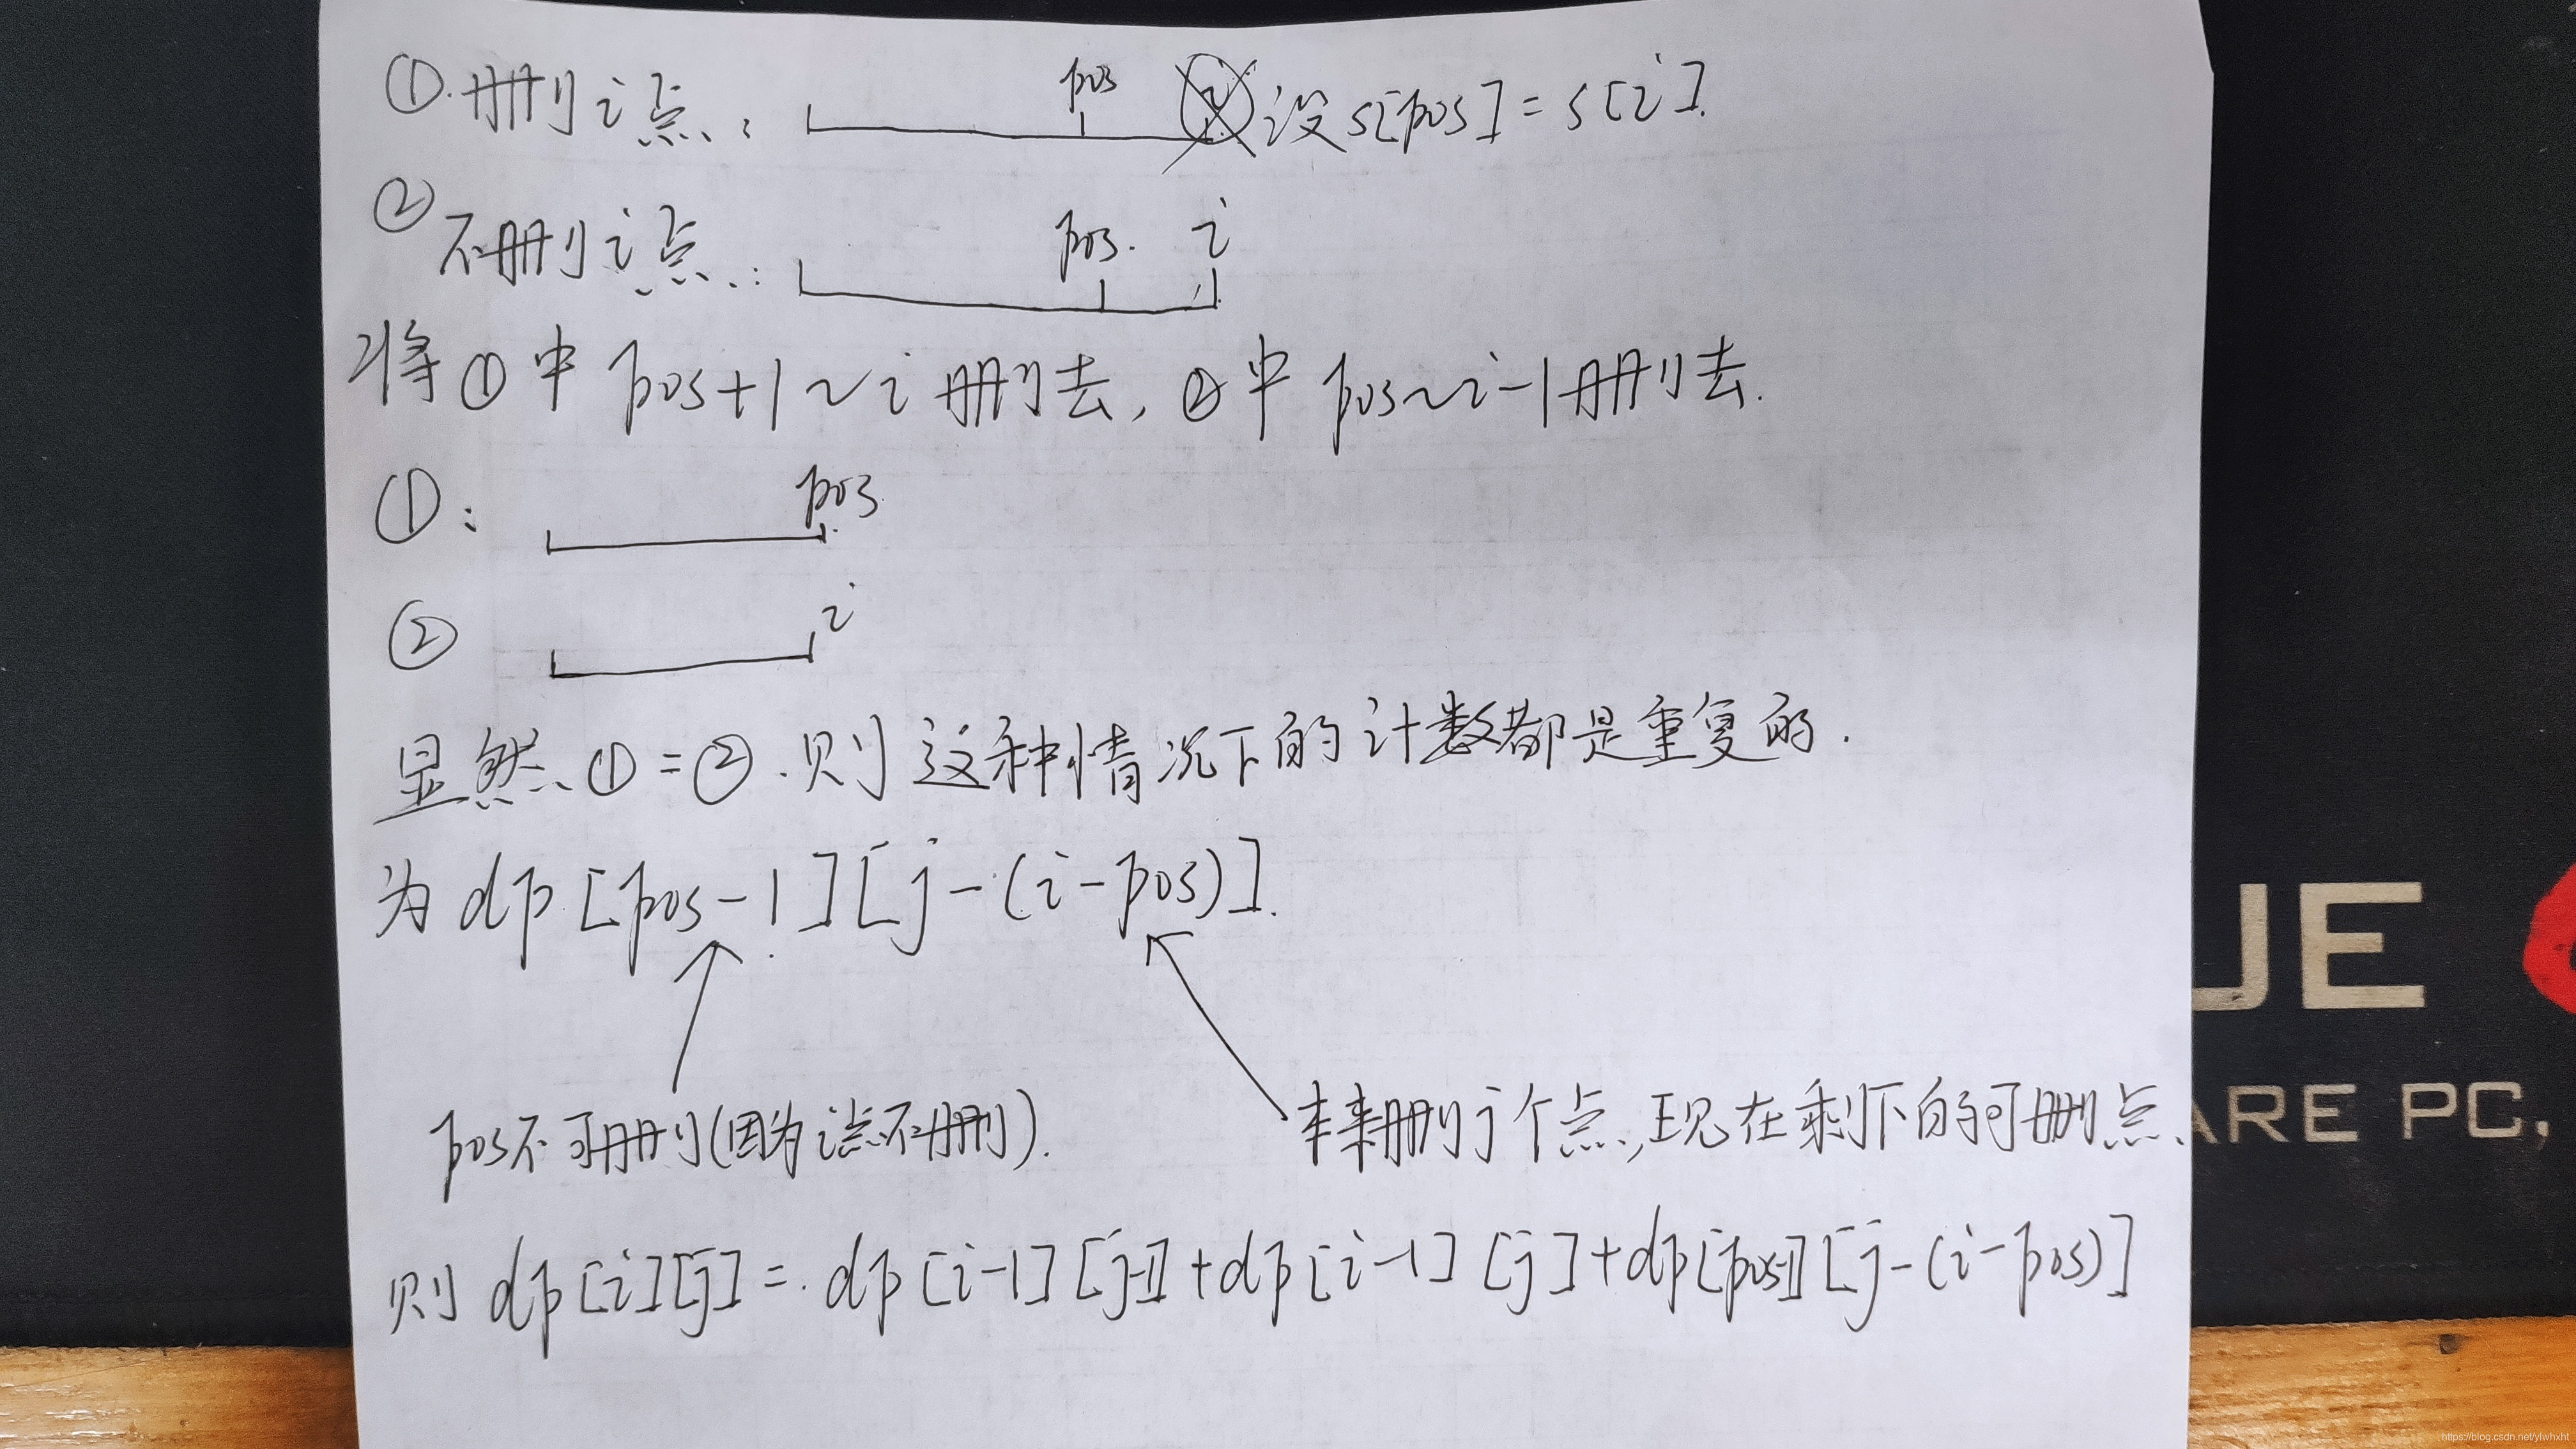 ①.删i点: pos i 设s[pos]=s[i].
②不删i点: pos. i
将①中pos+1~i删去,②中pos~i-1删去.
①: pos
② i
显然①=②.则这种情况下的计数都是重复的.
为dp[pos-1][j-(i-pos)].
pos不可删(因为i点不删). 本来删j个点,现在剩下的可删点
则dp[i][j]=dp[i-1][j-1]+dp[i-1][j]+dp[pos-1][j-(i-pos)]
UE
ARE PC,
https://blog.csdn.net/yiwhxht